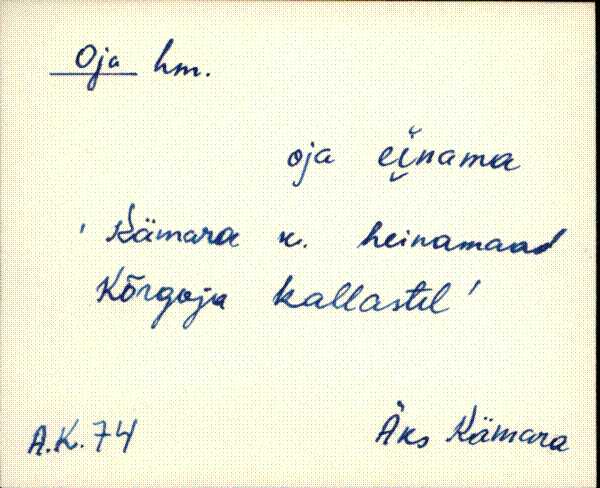 Oja hm.
oja ei̯nama
' Kämara k. heinamaad
Kõrgoja kallastel '
A.K. 74 Äks Kämara